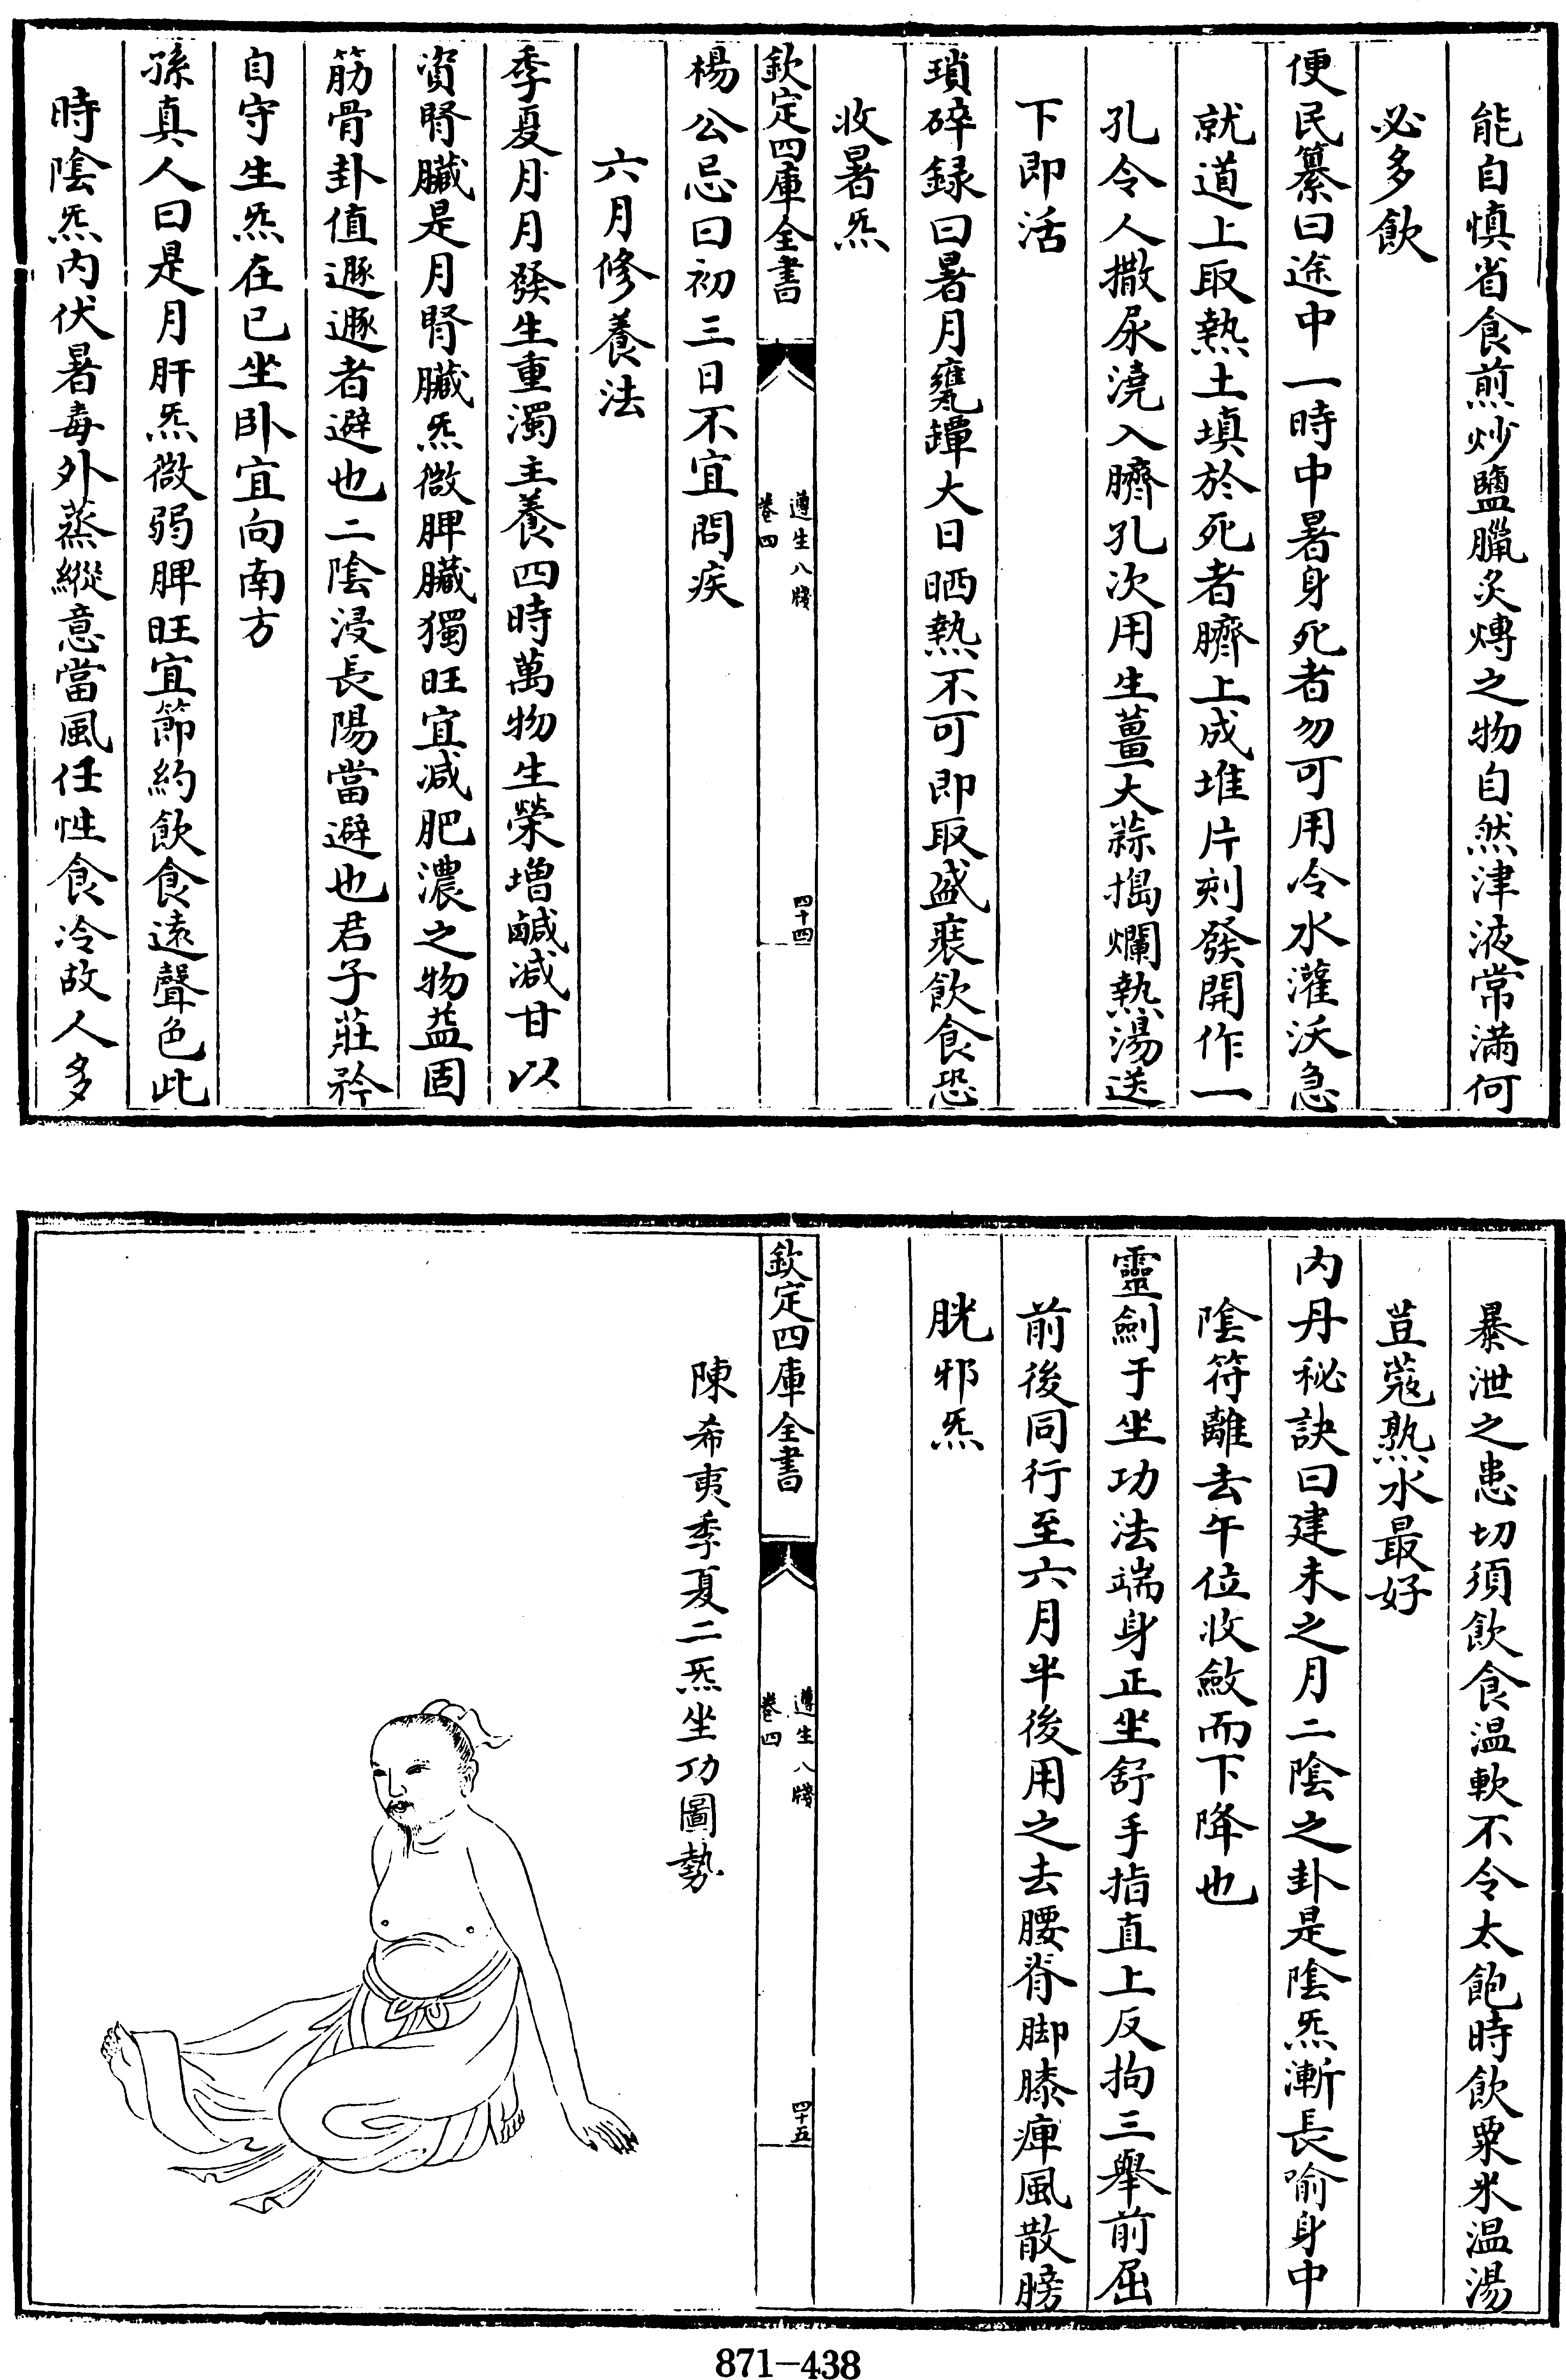 能自慎省食煎炒鹽臘炙煿之物自然津液常滿何
必多飲
便民纂曰途中一時中暑身死者勿可用冷水灌沃急
就道上取熱土填於死者臍上成堆片刻發開作一
孔令人撒尿澆入臍孔次用生薑大蒜搗爛熱湯送
下即活
瑣碎録曰暑月甕罈大日晒熱不可即取盛裝飲食恐
收暑炁
欽定四庫全書
遵生八牋
卷四
四十四
楊公忌曰初三日不宜問疾
六月修養法
季夏月月發生重濁主養四時萬物生榮增鹹減甘以
資腎臟是月腎臟炁微脾臟獨旺宜减肥濃之物益固
筋骨卦值遯遯者避也二陰浸長陽當避也君子莊矜
自守生炁在已坐卧宜向南方
孫真人曰是月肝炁微弱脾旺宜節約飲食遠聲色此
時陰炁内伏暑毒外蒸縱意當風任性食冷故人多
暴泄之患切須飲食温軟不令太飽時飲粟米温湯
荳蔻熟水最好
内丹秘訣曰建未之月二陰之卦是陰炁漸長喻身中
陰符離去午位收斂而下降也
靈劍于坐功法端身正坐舒手指直上反拘三舉前屈
前後同行至六月半後用之去腰脊脚膝痺風散膀
胱邪炁
欽定四庫全書
遵生八牋
卷四
四十五
陳希夷季夏二炁坐功圖勢
871-438